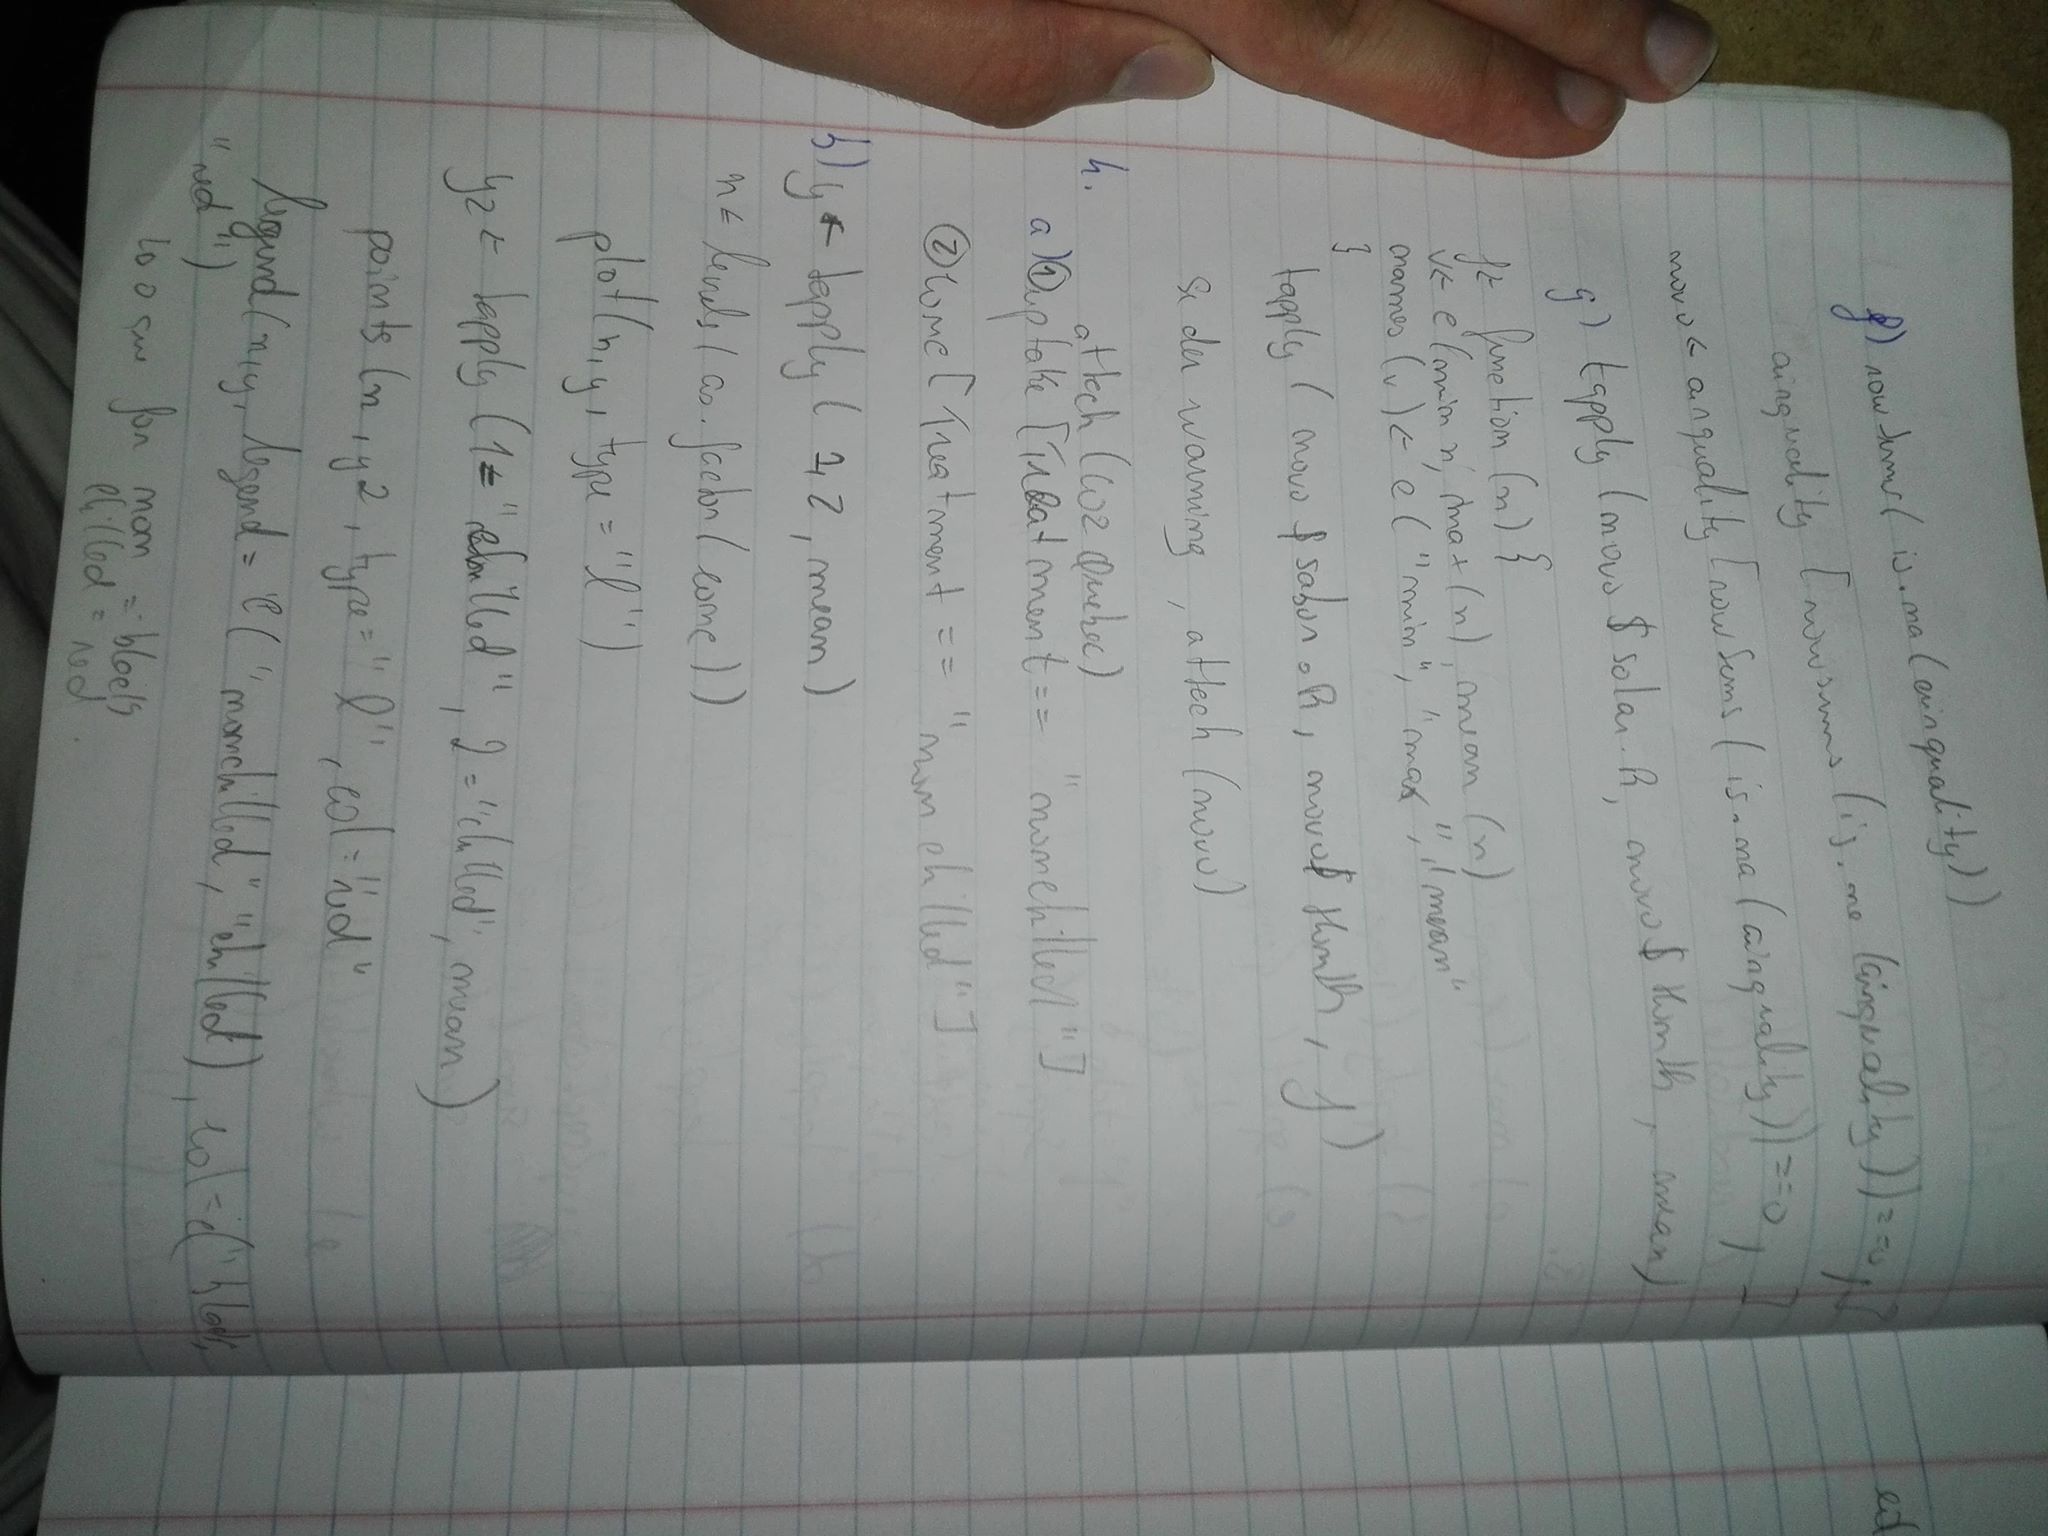 f) rowSums( is.na (airquality))
airquality [ rowsums (is.na (airquality)) ==0, ]
novo <- airquality [rowSums ( is.na (airquality)) ==0, ]
g) tapply (novo $ solar.R, novo $ Month, mean)
f<- function (x) {
v<- c(min x, max (x), mean (x)
names (v) <- c ( "min", "max", "mean"
}
tapply ( novo $ solar.R, novo$ Month, f)
Se der warning, attach (novo)
4. attach (CO2 Quebec)
a) ① uptake [Treatment == "nonchilled"]
② conc [Treatment == "nonchilled"]
b) y <- tapply ( 1, 2, mean)
x <- levels ( as.factor ( conc ))
plot (x, y, type = "l")
y2 <- tapply (1 = "chilled", 2 = "chilled", mean)
points (x, y2, type = "l", col = "red"
legend (x, y, legend = c ( "nonchilled", "chilled), col = c("black,
"red")
↳ o que for non = black
chilled = red.